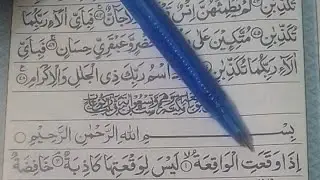 تُكَذِّبٰنِ ۝ لَمْ يَطْمِثْهُنَّ اِنْسٌ قَبْلَهُمْ وَلَا جَآنٌّ ۝ فَبِاَيِّ اٰلَآءِ رَبِّكُمَا
تُكَذِّبٰنِ ۝ مُتَّكِـِٕيْنَ عَلٰى خُضْرٍ وَّعَبْقَرِيٍّ حِسَانٍ ۝ فَبِاَيِّ
اٰلَآءِ رَبِّكُمَا تُكَذِّبٰنِ ۝ اسْمُ رَبِّكَ ذِي الْجَلٰلِ وَالْاِكْرَامِ ۝
بِسْمِ اللهِ الرَّحْمٰنِ الرَّحِيْمِ
اِذَا وَقَعَتِ الْوَاقِعَةُ ۝ لَيْسَ لِوَقْعَتِهَا كَاذِبَةٌ ۝ خَافِضَةٌ